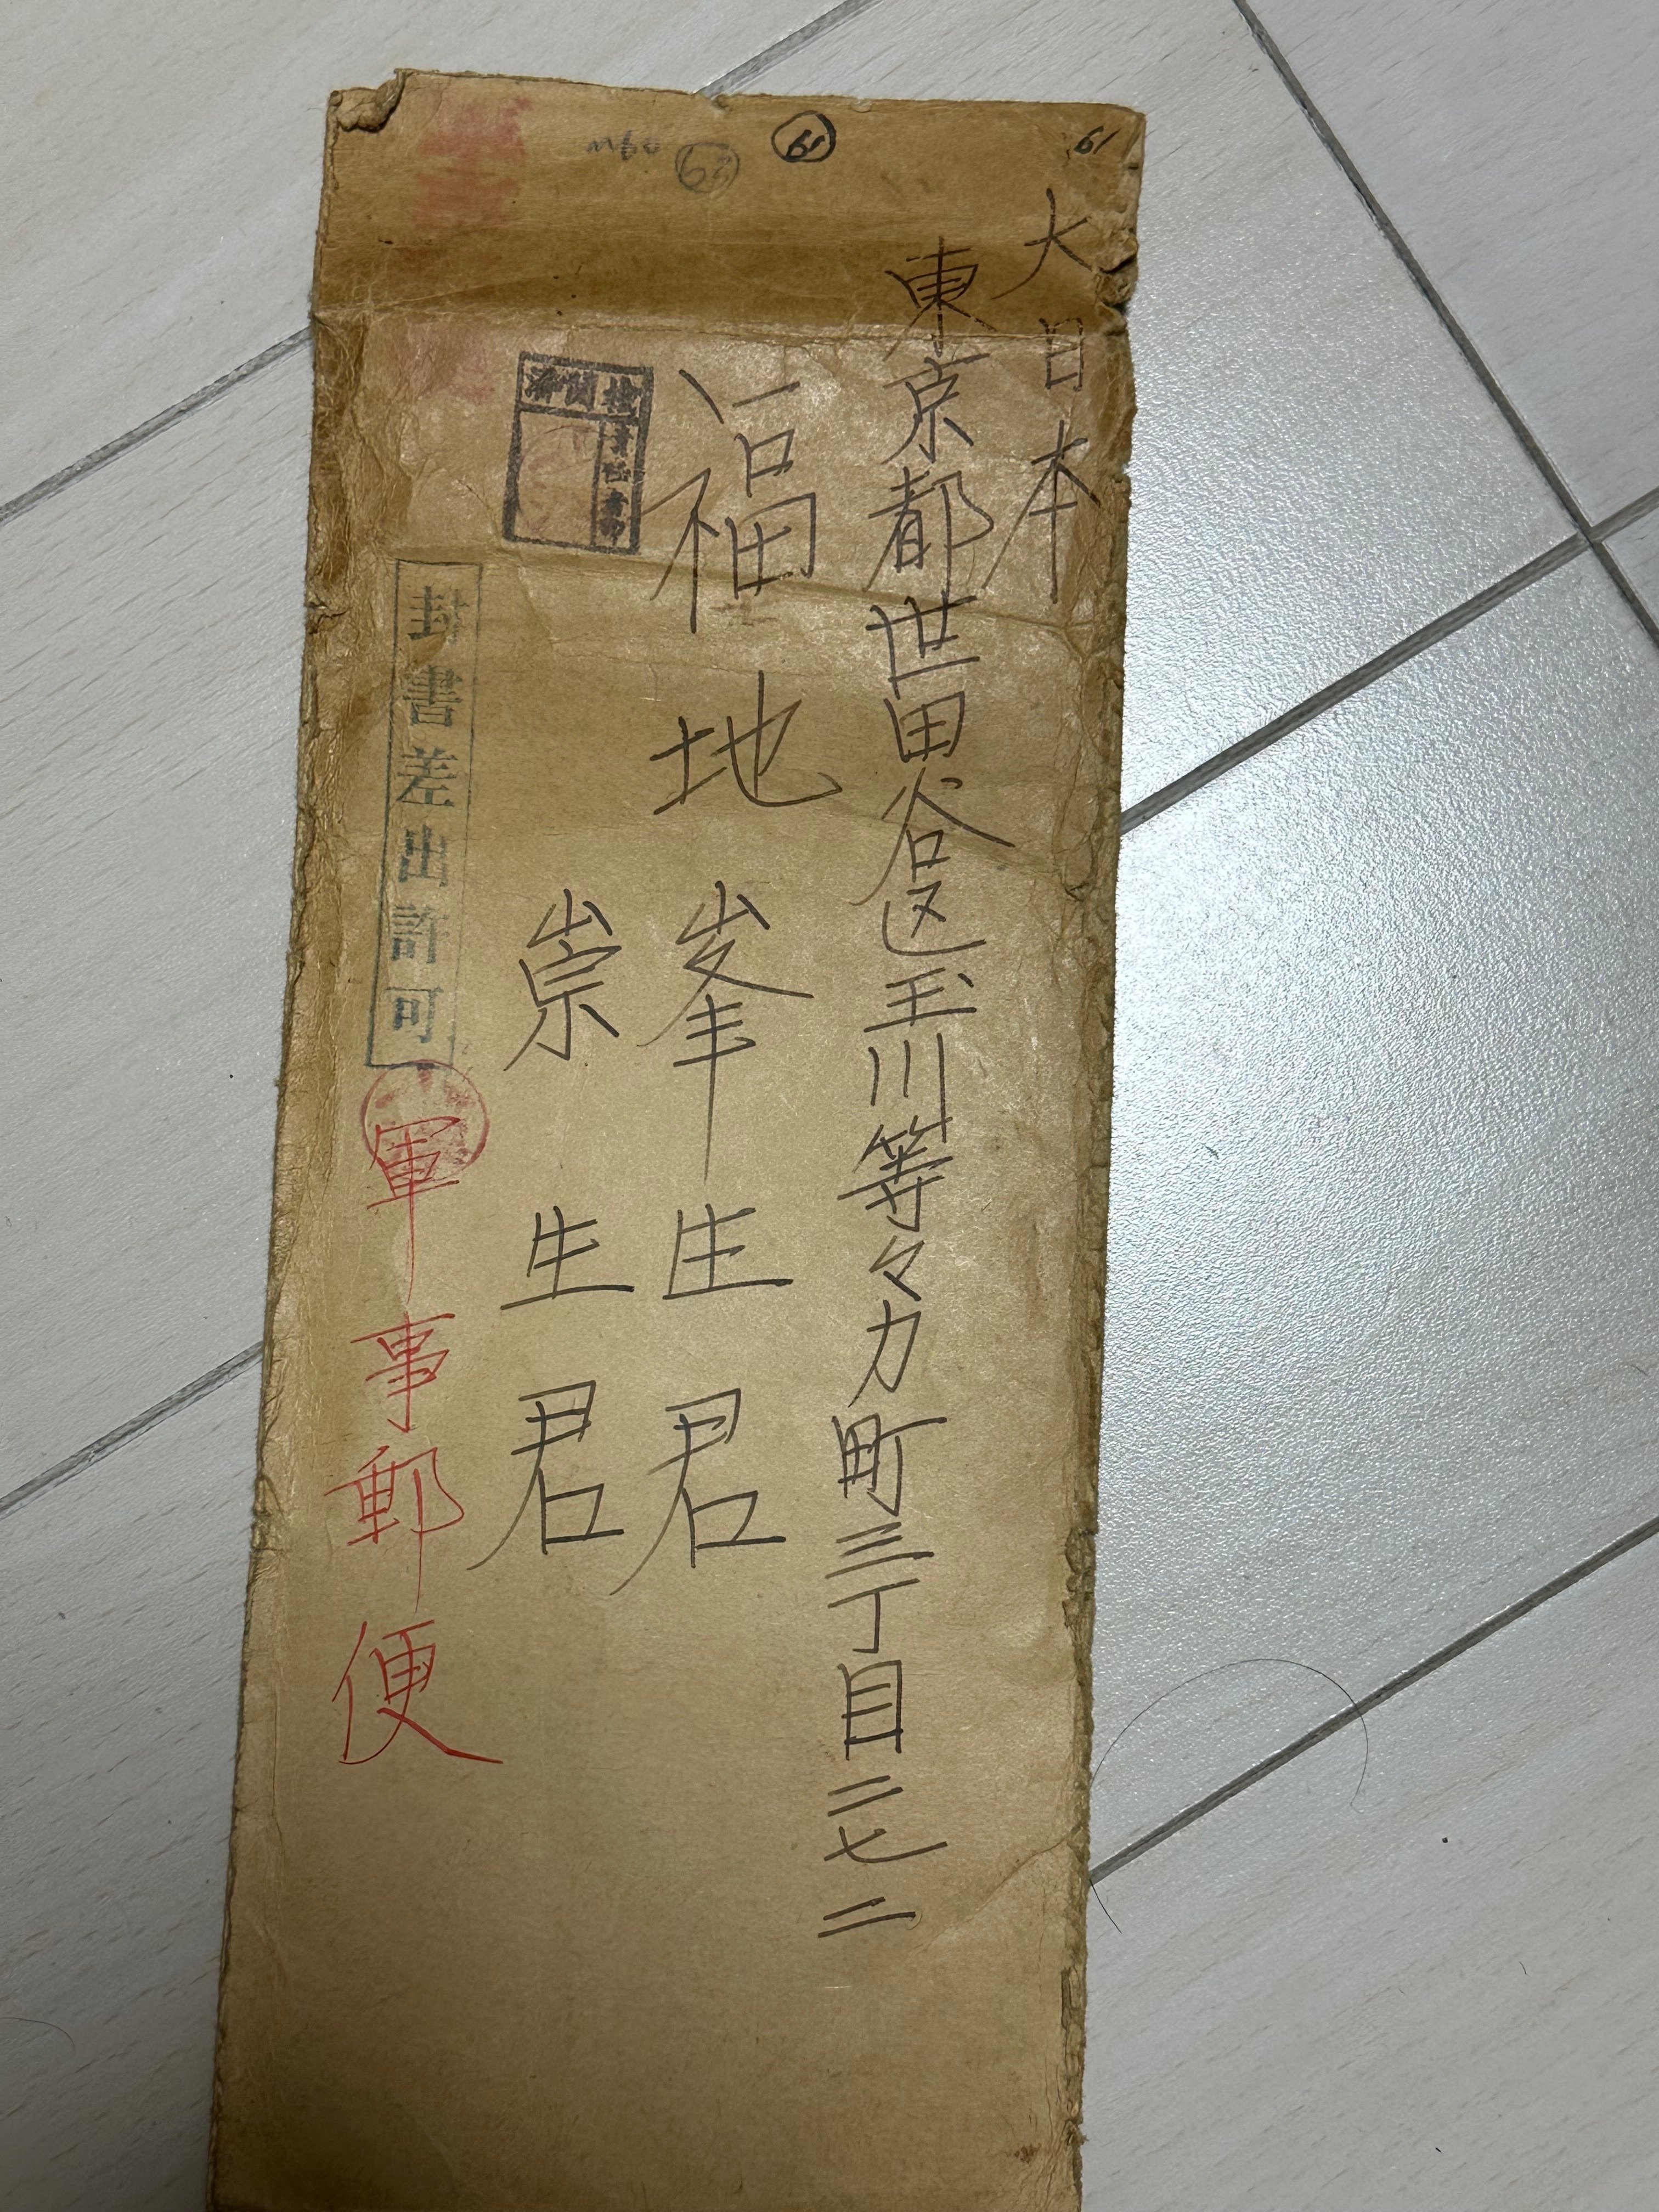 61
61
大日本
東京都世田谷区玉川等々力町三丁目二七二
福地峯生君
崇生君
検閲済
封書差出許可
軍事郵便